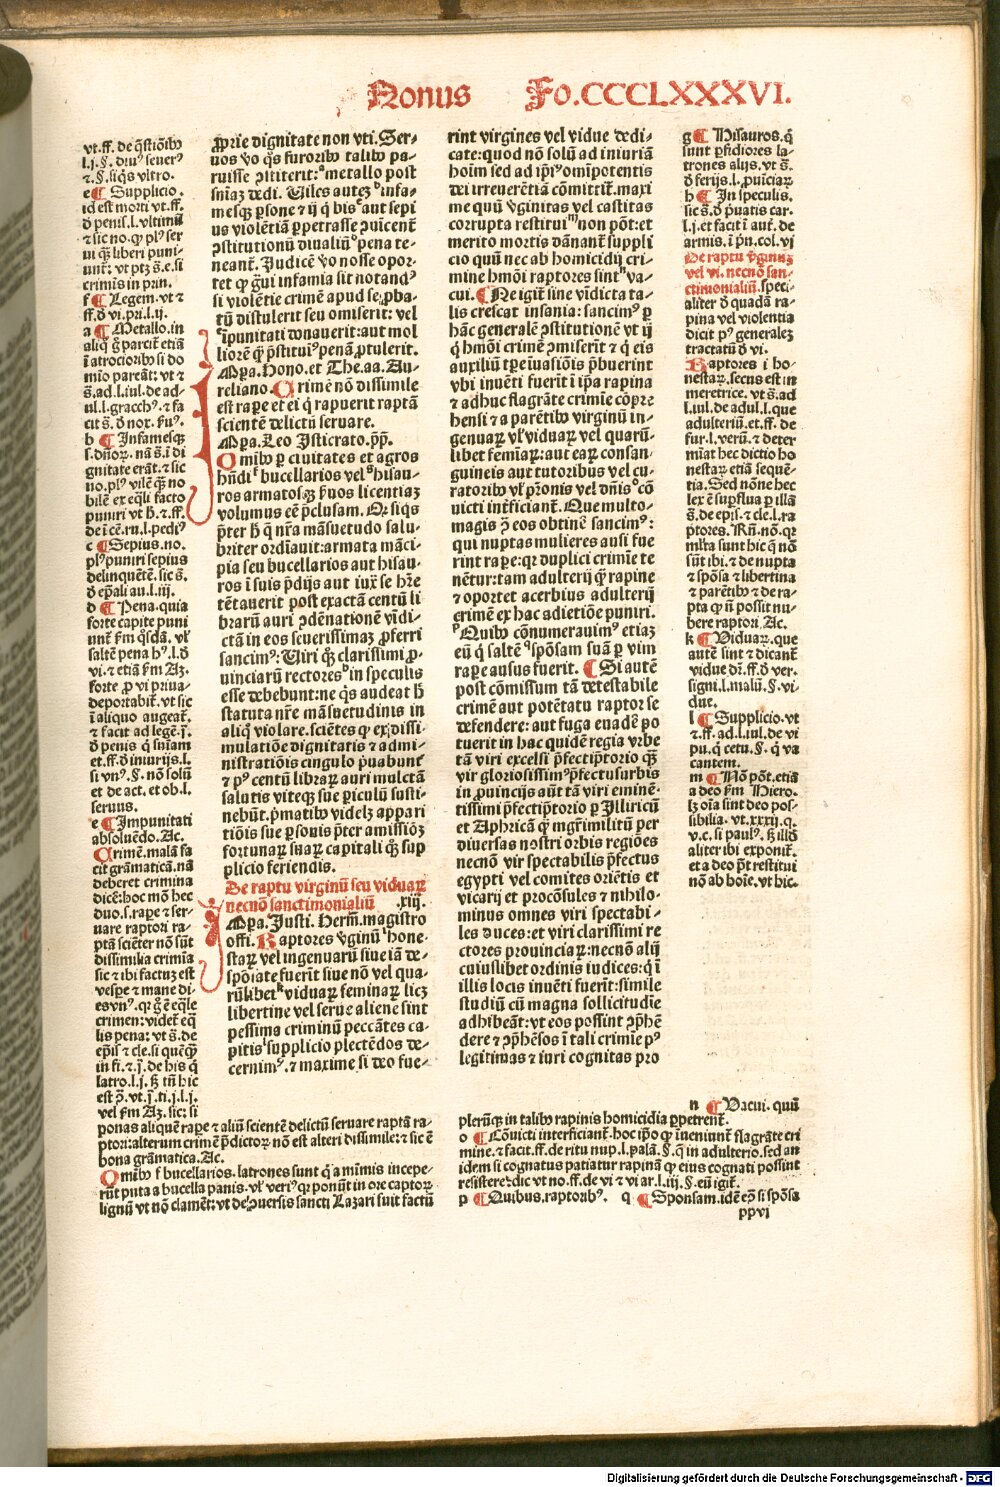 Nonus Fo.CCCLXXXVI.
vt.ff. de q̄stiōib⁹
l.j.§. diu⁹ seuer⁹
⁊.§.siq̄s vltro.
e ¶ Supplicio.
id est morti vt.ff.
ā penis.l.vltimū
⁊ sic no. ꝙ pl⁹ ser
ui q̄ꝫ liberi puni-
unt᷑: vt ptꝫ s̄.e.si
crimis in prin.
f ¶ Legem. vt ⁊
ff.ð vi.pri.l.ij.
a ¶ Metallo.in
aliq̊ g̊ parcit᷑ etiā
ī atrociorib⁹ si do
mio pareāt: vt ⁊
s̄.ad.l.iul.de ad-
ul.l.gracch⁹.⁊ fa
cit s̄.ð nox.
b ¶ Infamesqꝫ
gnitate erāt.⁊ sic
no.pl⁹ vilē q̄ꝫ no
bilē ex eq̄li facto
puniri vt h̄.⁊.ff.
de īcē.ru.l.pedi⁹
c ¶ Sepius.no.
pl⁹ puniri sepius
delinquētē.sic s̄.
ð ep̄ali au.l.iij.
d ¶ Pena.quia
forte capite puni
unt᷑ ẜm q̊sdā. vl᷑
saltē pena h⁹.l.ð
vi.⁊ etiā ẜm Aꝫ.
forte ꝓ vi priua-
deportabit᷑.vt sic
ī aliquo augeat᷑.
⁊ facit ad legē.j̄.
ð penis q̇ sniam
et.ff.ð iniurijs.l.
si vn⁹.§.nō solū
et de act.et ob.l.
seruus.
e ¶ Impunitati
absoluēdo.Ac.
Crimē.malā fa
cit grāmaticā.nā
deberet crimina
dicē:hoc mō hec
duo.s.rape ⁊ ser-
uare raptori ra-
ptā sciēter nō sūt
dissimilia crimīa
sic ⁊ ibi factuꝫ est
vespe ⁊ mane di-
es vn⁹.qr̄ g̊ ē eq̄le
crimen:videt᷑ eq̄
lis pena: vt s̄.de
ep̄is ⁊ cle.si quēq̄ꝫ
in fi.⁊.j̄.de his q̇
latro.l.j. sꝫ tn̄ hic
est ꝯ̄.vt.j̄.ti.j.l.j.
vel ẜm Aꝫ.sic: si
ponas aliquē rape ⁊ aliū scientē delictū seruare raptā ra-
ptori:alterum crimē p̄dictoꝝ nō est alteri dissimile:⁊ sic ē
bona grāmatica.Ac.
Omīb⁹ f bucellarios.latrones sunt q̇ a mīmis incepe-
rūt puta a bucella panis.vl᷑ veri⁹ qr ponūt in ore captoꝝ
lignū vt nō clamēt:vt de ꝯuersis sancti Lazari suit factū
ꝓprie dignitate non vti. Ser-
uos ṽo q̄s furorib⁹ talib⁹ pa-
ruisse ꝯstiterit:ᵃmetallo post
sniaꝫ dedi. Viles auteꝫᵇinfa-
mesqꝫ ꝑsone ⁊ ij q̇ bisᶜaut sepi
us violētiā ꝑpetrasse ꝯuicent᷑
ꝯstitutionū diualiūᵈpena te-
neant᷑. Judicē ṽo nosse opor-
tet ꝙ g̊ui infamia sit notand⁹
si violētie crimē apud se ꝓba-
tū distulerit seu omiserit: vel
ᵉīpunitati donauerit:aut mol
liorē q̄ꝫ p̄stitui⁹ penā ꝓtulerit.
Impa. Hono.et The.aa. Au-
reliano. Crimē nō dissimile
est rape et ei q̇ rapuerit raptā
scientē delictū seruare.
Impa.Leo Isticrato.pp̄.
Omīb⁹ ꝑ ciuitates et agros
hn̄diᶠbucellarios velᵍhisau-
ros armatosqꝫ ẜuos licentiaꝫ
volumus eē p̄clusam. Qr̄ siqs
p̄ter h̄ q̄ nr̄a māsuetudo salu-
briter ordīauit:armata māci-
pia seu bucellarios aut hisau-
ros ī suis p̄dijs aut iuxᷓ se hr̄e
tētauerit post exactā centū li
braꝝ auri ꝯdēnationē vīdi-
ctā in eos seuerissimaꝫ ꝓferri
sancim⁹:Viri q̄ꝫ clarissimi ꝓ-
uinciaꝝ rectoresʰin speculis
esse debebunt:ne q̄s audeat h̄
statuta nr̄e māsuetudinis in
aliq̊ violare.sciētes ꝙ ex dissi-
mulatiōe dignitatis ⁊ admi-
nistratiōis cingulo p̄uabunt᷑
⁊ p⁹ centū libraꝝ auri mulctā
salutis viteqꝫ sue periculū susti-
nebūt.p̄matib⁹ videlꝫ appari
tiōis sue ꝑsonis p̄ter amissiōꝫ
fortunaꝝ suaꝝ capitali q̄ꝫ sup
plicio feriendis.
De raptu virginū seu viduaꝝ
necnō sanctimonialiū .xiij.
Impa. Justi. Herm̄.magistro
offi. Raptores ṽginūⁱhone-
staꝝ vel ingenuarū siue iā de-
spōsate fuerīt siue nō vel qua-
rūlibetᵏviduaꝝ feminaꝝ licꝫ
libertine vel serue aliene sint
pessima criminū peccātes ca-
pitisˡsupplicio plectēdos de-
cernim⁹.⁊ maxime si deo fue-
rint virgines vel vidue dedi-
cate:quod nō solū ad iniuriā
hoīm sed ad ip̄i⁹ omīpotentis
dei irreuerētiā cōmittit᷑.maxi
me quū ṽginitas vel castitas
corrupta restituiᵐnon pōt:et
merito mortis dānant᷑ suppli
cio quū nec ab homicidij cri-
mine hmōi raptores sintⁿva-
cui. ¶ Ne igit᷑ sine vīdicta ta-
lis crescat insania: sancim⁹ ꝑ
hāc generalē ꝯstitutionē vt ij
q̇ hmōi crimē ꝯmiserīt ⁊ q̇ eis
auxiliū tꝑe īuasiōis p̄buerint
vbi inuēti fuerīt ī ip̄a rapina
⁊ adhuc flagrāte crimīe cōp̄re
hensi ⁊ a parētib⁹ virginū in-
genuaꝝ vl᷑ viduaꝝ vel quarū-
libet femīaꝝ:aut eaꝝ consan-
guineis aut tutoribus vel cu-
ratorib⁹ vl᷑ p̄ronis vel dn̄isᵒcō
uicti int̄ficiant᷑. Que multo-
magis ꝯ̄ eos obtinē sancim⁹:
qui nuptas mulieres ausi fue
rint rape:qr duplici crimīe te
nētur:tam adulterij q̄ꝫ rapine
⁊ oportet acerbius adulterij
crimē ex hac adietiōe puniri.
ᵖQuib⁹ cōnumerauim⁹ etiaꝫ
eū q̇ saltēᵠspōsam suā ꝑ vim
rape ausus fuerit. ¶ Si autē
post cōmissum tā detestabile
crimē aut potētatu raptor se
defendere: aut fuga euadē po
tuerit in hac quidē regia vrbe
tā viri excelsi p̄fecti p̄torio q̄ꝫ
vir gloriosissim⁹ p̄fectus vrbis
in ꝓuincijs aūt tā viri eminē-
tissimi p̄fecti p̄torio ꝑ Illiricū
et Aphricā q̄ꝫ mgr̄i militū per
diuersas nostri orbis regiōes
necnō vir spectabilis p̄fectus
egypti vel comites oriētis et
vicarij et procōsules ⁊ nihilo-
minus omnes viri spectabi-
les duces:et viri clarissimi re
ctores prouinciaꝝ:necnō alij
cuiuslibet ordinis iudices:q̇ ī
illis locis inuēti fuerīt:simile
studiū cū magna sollicitudīe
adhibeāt:vt eos possint ꝯp̄hē
dere ⁊ ꝯp̄hēsos ī tali crimīe p⁹
legitimas ⁊ iuri cognitas pro
g ¶ Hisauros.q̇
sunt ꝑfidiores la-
trones alijs.vt s̄.
ð ferijs.l.ꝓuīciaꝝ
h ¶ In speculis.
sic s̄.ð p̄uatis car-
l.j.et facit ī aut̄.de
armis.ī prī.col.vj
De raptu ṽginuꝫ
vel vi.necnō san-
ctimonialiū.speci-
aliter ð quadā ra-
pina vel violentia
dicit p⁹ generaleꝫ
tractatū ð vi.
Raptores i ho-
nestaꝝ.secus est in
meretrice.vt s̄.ad
l.iul.de adul.l.que
adulteriū.et.ff.de
fur.l.verū.⁊ deter
mīat hec dictio ho
nestaꝝ etiā sequē-
tia. Sed nōne hec
lex ē suꝑflua ꝑ illā
s̄.de ep̄is.⁊ cle.l.ra
ptores. Rn̄.nō.qr
mlta sunt hic q̄ nō
sūt ibi.⁊ de nupta
⁊ spōsa ⁊ libertina
⁊ parētib⁹ ⁊ de ra-
pta ꝙ n̄ possit nu-
bere raptori.Ac.
k ¶ Viduaꝝ.que
autē sint ⁊ dicant᷑
vidue dr̄.ff.ð ver.
signi.l.malū.§.vi-
due.
l ¶ Supplicio.vt
⁊.ff.ad.l.iul.de vi
pu.q̇ cetu.§.q̇ va
cantem.
m ¶ Nō pōt.etiā
a deo ẜm Hiero.
lꝫ oīa sint deo pos-
sibilia.vt.xxxij.q.
v.c.si paul⁹. sꝫ illð
aliter ibi exponit᷑.
et a deo p̄t restitui
nō ab hoīe.vt hic.
n ¶ Vacui.quū
plerūqꝫ in talib⁹ rapinis homicidia ꝑpetrent᷑.
o ¶ Cōuicti interficiant᷑.hoc ip̄o ꝙ īueniunt᷑ flagrāte cri
mine.⁊ facit.ff.de ritu nup.l.palā.§.q̄ in adulterio.sed an
idem si cognatus patiatur rapinā ꝙ eius cognati possint
resistere:dic vt no.ff.de vi ⁊ vi ar.l.iij.§.eū igit᷑.
p ¶ Quibus.raptorib⁹. q ¶ Sponsam.idē eꝫ̄ si spōsa
ppvi
Digitalisierung gefördert durch die Deutsche Forschungsgemeinschaft - DFG